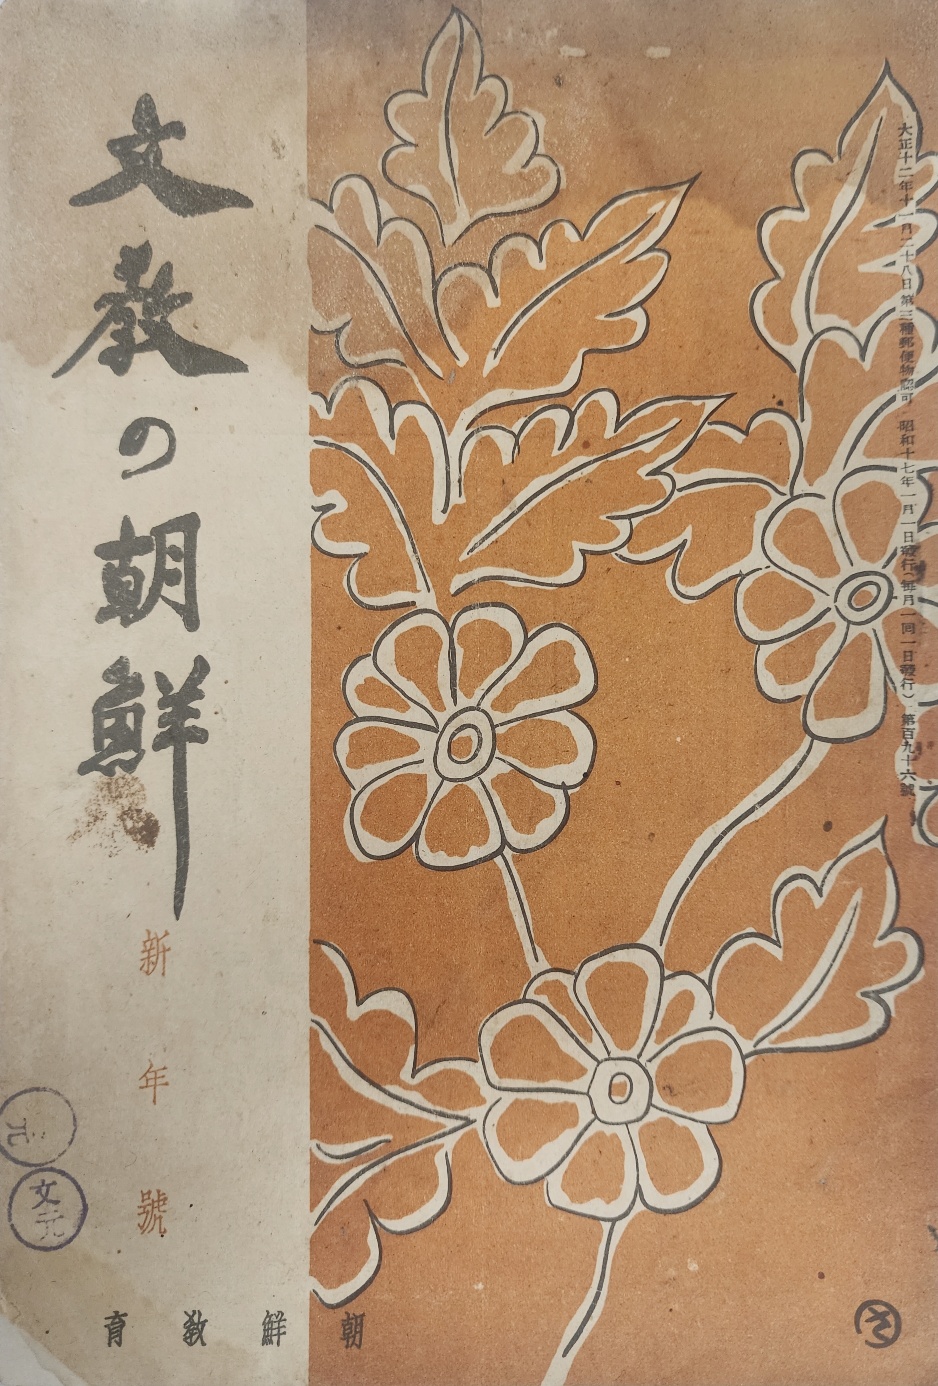 大正十二年十一月二十八日第三種郵便物認可 昭和十七年一月一日發行(每月一回一日發行) 第百九十六號
文教の朝鮮
新年號
元
文元
朝鮮教育